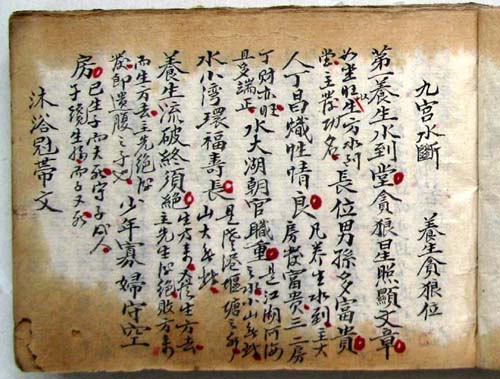 九宮水斷　養生貪狼位
第一養生水到堂貪狼星照顯文章
坐旺生方水到
堂主發功名
長位男孫多富貴
人丁昌熾性情良
凡養生水到主大
房發富貴三二房
丁財亦旺
且多端正
水大湖朝官職重
是江湖河海
之水小山無此
水小灣環福壽長
是港堰塘之
山大無此
養生流破終須絕
生方來養生方去
主先生後絕敗方來
而生方去主先絕後
發即遺腹之子也
少年寡婦守空
房
已生子而夫死守子成人
子纔生孫而子又死
沐浴冠帶文